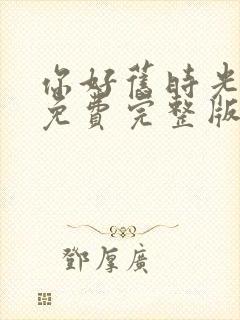 你好舊時光
免費完整版
鄧厚廣